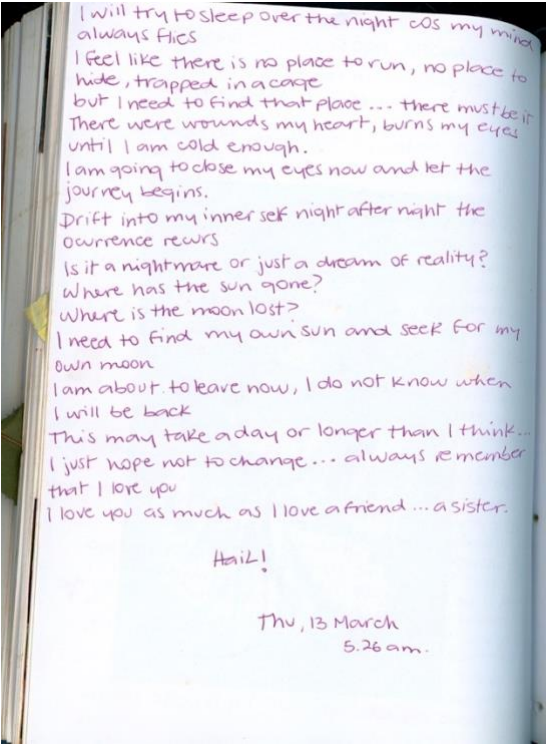 I will try to sleep over the night cos my mind
always flies
I feel like there is no place to run, no place to
hide, trapped in a cage
but I need to find that place ... there must be it
There were wounds my heart, burns my eyes
until I am cold enough.
I am going to close my eyes now and let the
journey begins.
Drift into my inner self night after night the
ocurrence recurs
Is it a nightmare or just a dream of reality?
Where has the sun gone?
Where is the moon lost?
I need to find my own sun and seek for my
own moon
I am about to leave now, I do not know when
I will be back
This may take a day or longer than I think...
I just hope not to change... always remember
that I love you
I love you as much as I love a friend ... a sister.
Hail!
Thu, 13 March
5.26 am.